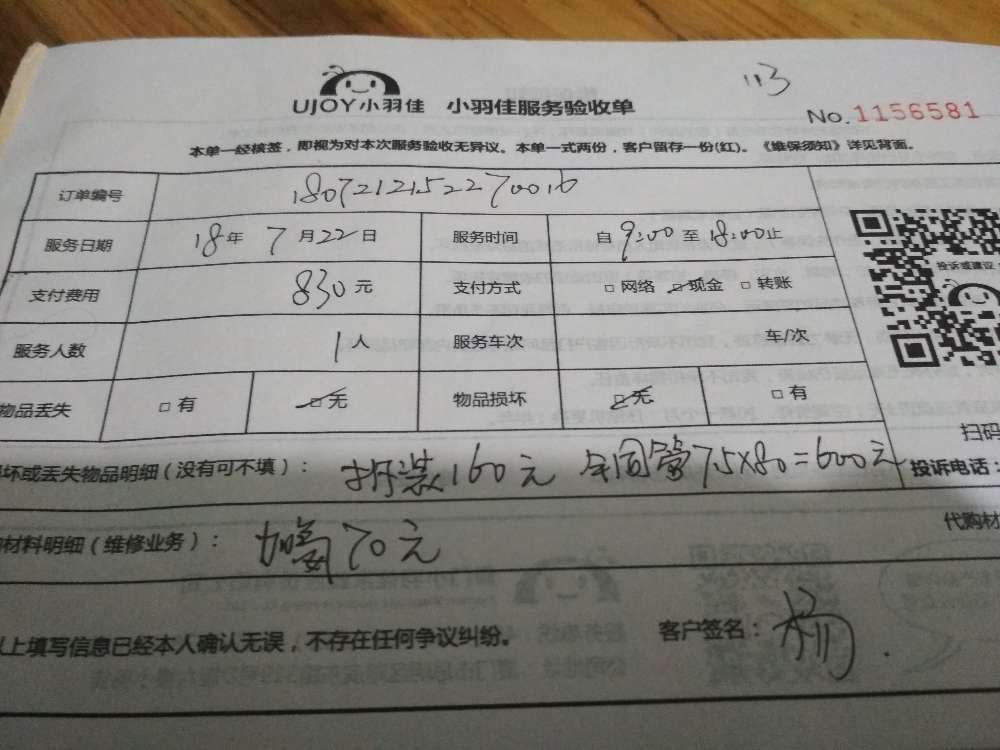 113
UJOY小羽佳 小羽佳服务验收单
No.1156581
本单一经核签，即视为对本次服务验收无异议。本单一式两份，客户留存一份(红)。《维保须知》详见背面。
订单编号 180721215227001b
服务日期 18年 7月22日 服务时间 自9:00至18:00止
支付费用 830元 支付方式 □网络 ☑现金 □转账
投诉或建议
服务人数 1人 服务车次 车/次
物品丢失 □有 ☑无 物品损坏 ☑无 □有
扫码
坏或丢失物品明细（没有可不填）： 拆装160元 铜管7.5×80=600元 投诉电话：
材料明细（维修业务）： 加氟70元 代购材
以上填写信息已经本人确认无误，不存在任何争议纠纷。 客户签名： 杨